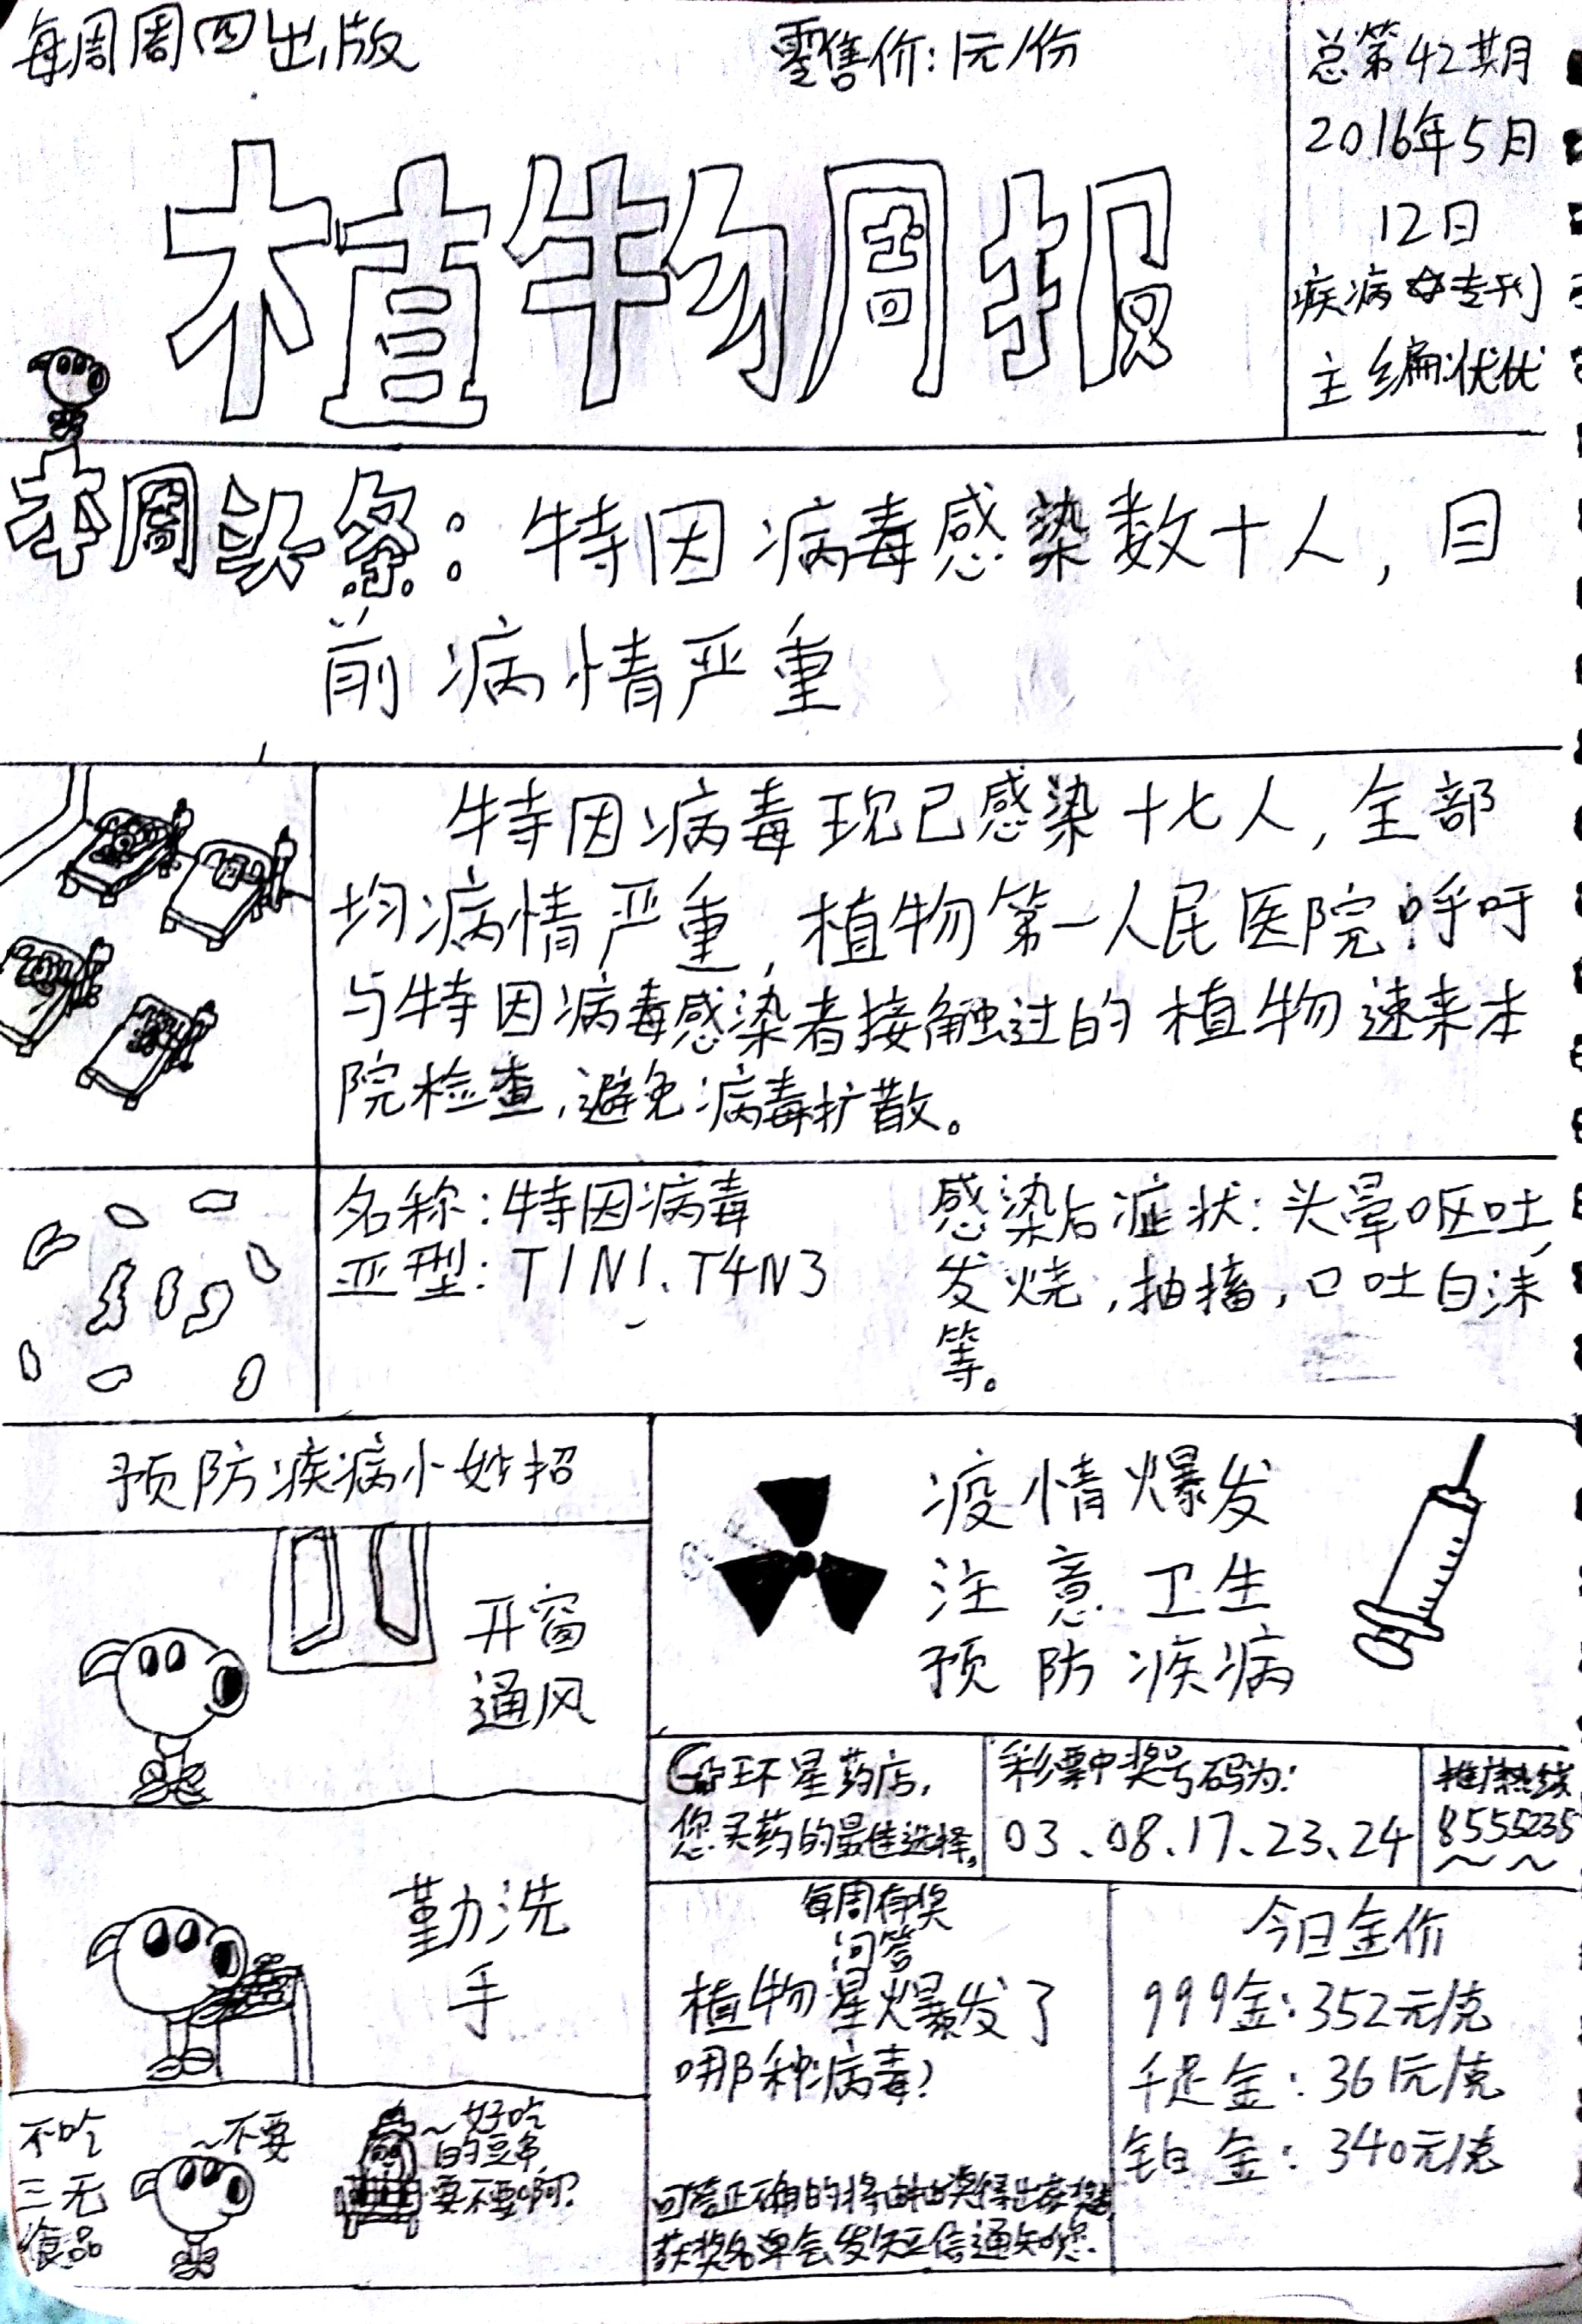 每周周四出版
零售价:1元/份
总第42期
2016年5月
12日
疾病专刊
主编:伏伏
植物周报
本周头条:特因病毒感染数十人,目
前病情严重
特因病毒现已感染十七人,全部
均病情严重,植物第一人民医院呼吁
与特因病毒感染者接触过的植物速来本
院检查,避免病毒扩散。
名称:特因病毒
亚型:T1N1、T4N3
感染后症状:头晕呕吐,
发烧,抽搐,口吐白沫
等。
预防疾病小妙招
开窗
通风
勤洗
手
不吃
三无
食品
~不要
~好吃
的豆串,
要不要啊?
疫情爆发
注意卫生
预防疾病
环星药店,
您买药的最佳选择。
彩票中奖号码为:
03、08、17、23、24
推广热线
8555235
~ ~
每周有奖
问答
植物星爆发了
哪种病毒?
回答正确的将由抽奖得出获奖者,
获奖名单会发短信通知您.
今日金价
999金:352元/克
千足金:361元/克
铂金:340元/克